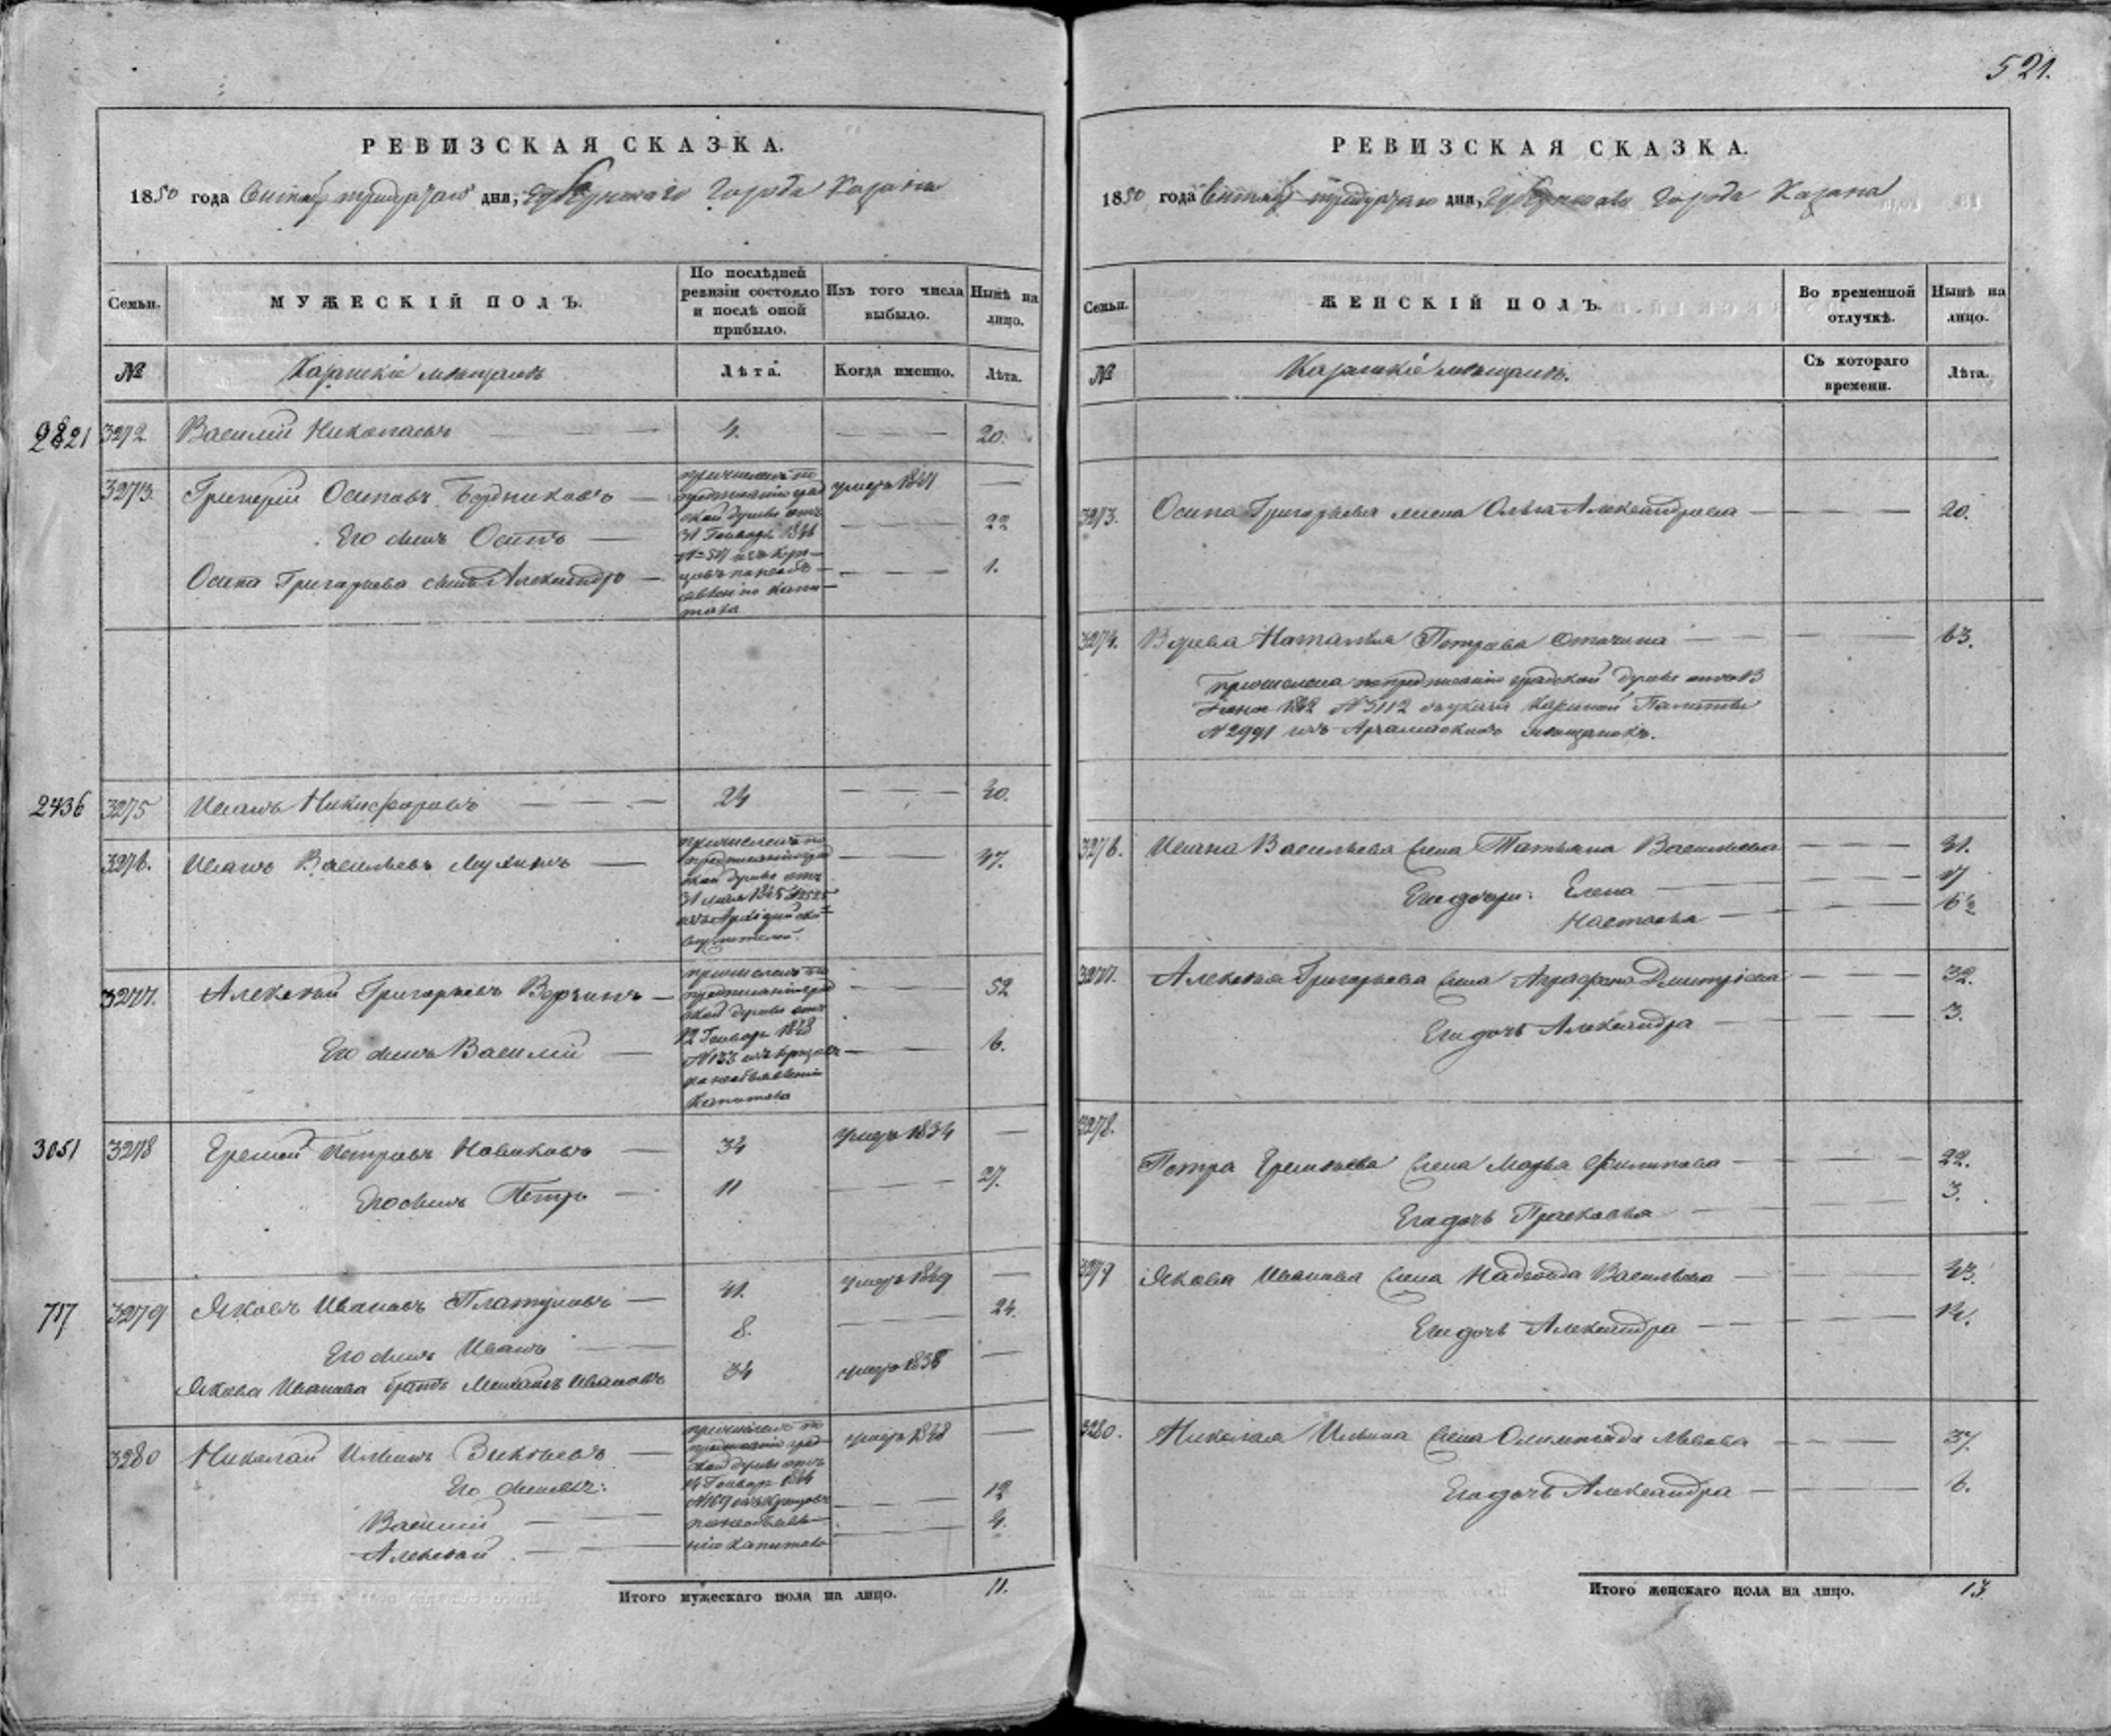 521.
РЕВИЗСКАЯ СКАЗКА.
1850 года Сентяб тридцатаго дня, Губернскаго Города Казани
Семьи.
МУЖЕСКІЙ ПОЛЪ.
По послѣдней ревизіи состояло и послѣ оной прибыло.
Изъ того числа выбыло.
Нынѣ на лицо.
№
Казанскіе мѣщане
Лѣта.
Когда именно.
Лѣта.
2821 3272 Василій Николаевъ 4. 20.
3273. Григорій Осиповъ умеръ
Его сынъ Осипъ 22
Осипа Григорьева сынъ Александръ 1.
причисленъ по
предписанію град
ской думы отъ
31 Генваря 1846
капи
тала
2436 3275 Иванъ Никифоровъ 24 40.
3276. Иванъ Васильевъ 37.
причисленъ по
предписанію град
ской думы отъ
31 мая 1845
3277. Алексѣй Григорьевъ 52
Его сынъ Василій 6.
причисленъ по
предписанію град
ской думы отъ
12 Генваря 1848
№ 133 изъ купцовъ
по необъявленію
Капитала
3051 3278 Еремей Петровъ Новиковъ 34 умеръ 1834
Его сынъ Петръ 11 27.
717 3279 Яковъ Ивановъ 41. умеръ 1849
Его сынъ Иванъ 8. 24.
Якова Иванова братъ Михайлъ Ивановъ 34 умеръ 1838
3280 Николай Ильинъ умеръ 1848
Его сыновья:
Василій 12
Алексѣй 4.
причисленъ по
предписанію град
ской думы отъ
14 Генваря
№ 169 изъ Купцовъ
по необъявле
нію капитала
Итого мужескаго пола на лицо. 11.
РЕВИЗСКАЯ СКАЗКА.
1850 года Сентяб тридцатаго дня, Губернскаго Города Казани
Семьи.
ЖЕНСКІЙ ПОЛЪ.
Во временной отлучкѣ.
Нынѣ на лицо.
№
Казанскіе мѣщане.
Съ котораго времени.
Лѣта.
3273. Осипа Григорьева жена Ольга Александрова 20.
3274. Вдова Наталья Петрова 63.
Причислена по предписанію градской думы отъ 13
Іюня 1842 № 3112 и указа Казенной Палаты
№ 2991 изъ Арзамаскихъ мѣщанокъ.
3276. Ивана Васильева жена Татьяна Васильева 31.
Ея дочери: Елена
Настасья
3277. Алексѣя Григорьева жена Аграфена Дмитріева 32.
Ея дочь Александра 3.
3278.
Петра Еремѣева жена Марья Филипова 22.
Ея дочь Прасковья 3.
3279 Якова Иванова жена Надежда Васильева 43.
Ея дочь Александра 14.
3280. Николая Ильина жена Олимпіада Львова 37.
Ея дочь Александра 6.
Итого женскаго пола на лицо. 13